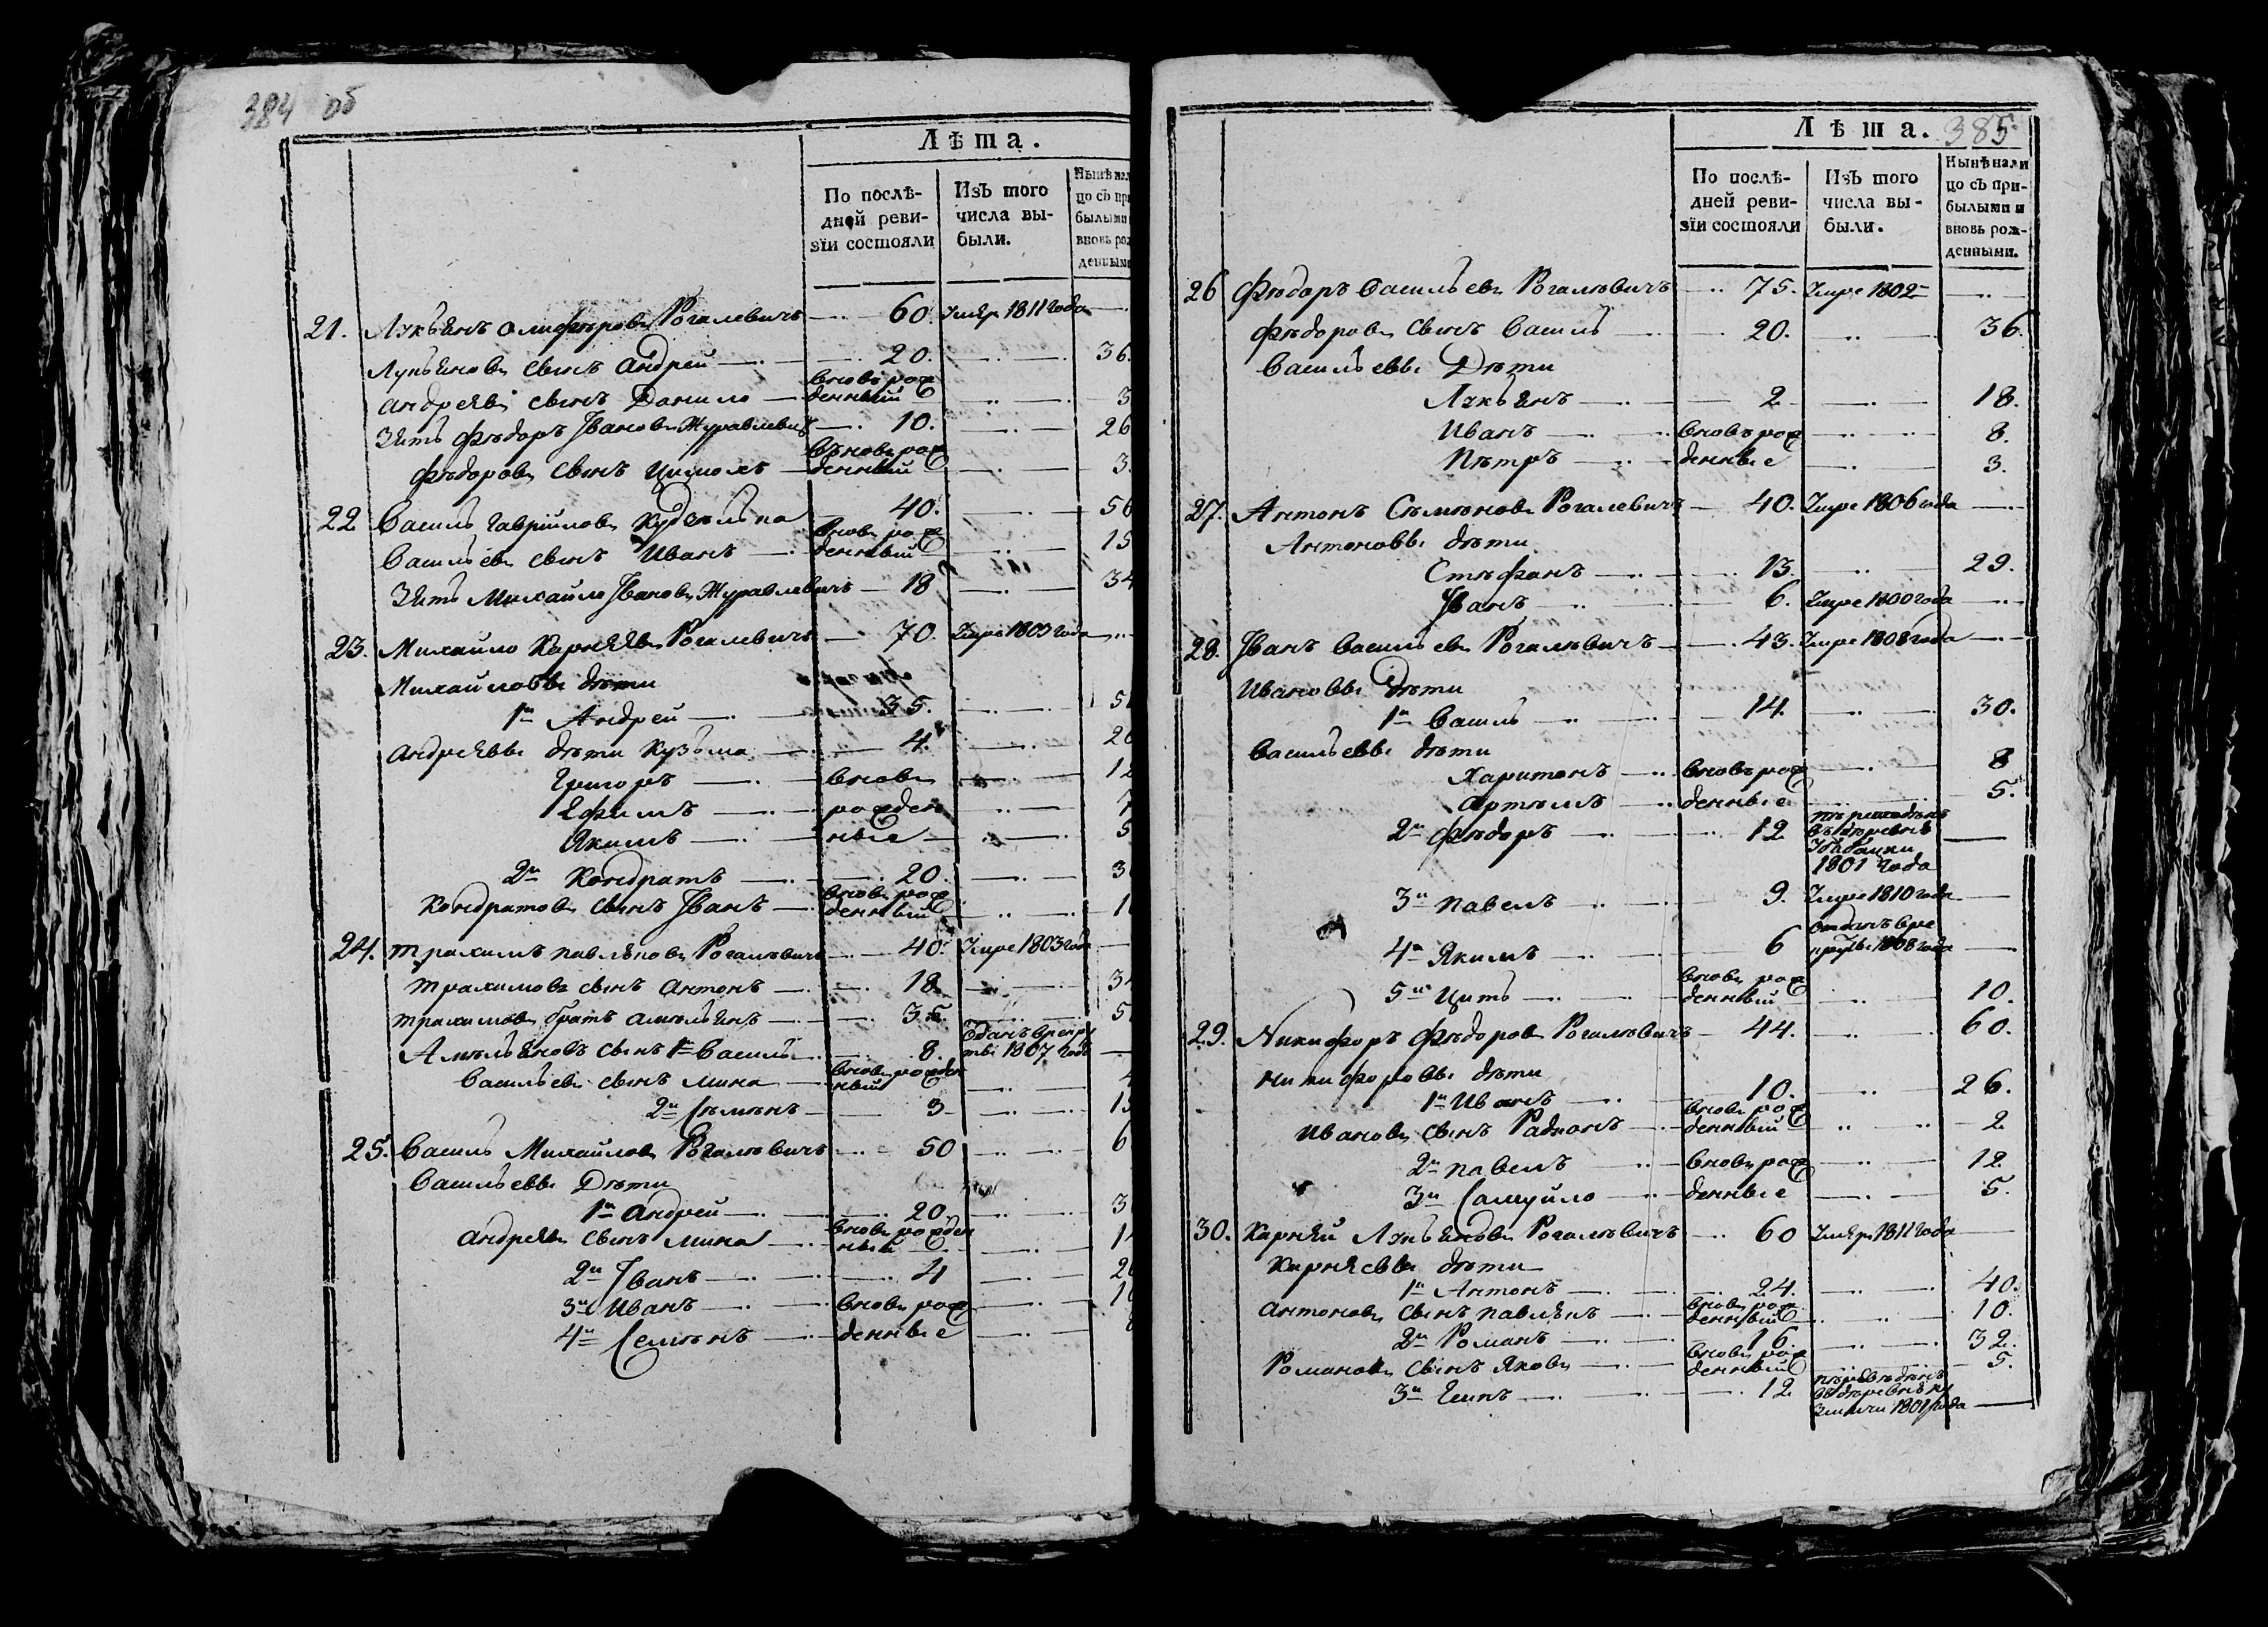 384 об
Лѣта.
По послѣ-
дней реви-
зїи состояли
Изъ того
числа вы-
были.
Нынѣ нал
цо съ при
былыми
вновь рож
денными
21. Лукьянъ Олиферовъ Рогалевичъ 60. умер 1811 года
Лукьяновъ сынъ Андрей 20. 36.
Андреявъ сынъ Данило вновь рожденный 3
Зять Фѣдоръ Ивановъ Журавлевичъ 10. 26
Фѣдоровъ сынъ вновь рожденный 3.
22 Василь Гаврилов 40. 56
Васильевъ сынъ Иванъ вновь рожденный 15
Зять Михайло Ивановъ Журавлевичъ 18 34
23. Михайло Карнѣявъ Рогалевичъ 70. умре года
Михайловы дѣти
1й Андрей 35. 5
Андреявы дѣти Кузьма 4. 20
Григоръ вновь 12
Ефимъ рожден 7
Якимъ ные 5
2й Кондратъ 20. 3
Кондратовъ сынъ Іванъ вновь рожденный 1
24. Трахимъ Павлюковъ Рогалѣвичъ 40. умре 1803 года
Трахимовъ сынъ Антонъ 18 3
Трахимовъ братъ Амельянъ 35. 5
Амѣльяновъ сынъ 1й Василь 8. Отданъ в рекрутві 1807 году
Васильевъ сынъ Мина вновь рожденный
2й Сѣмѣнъ 3 1
25. Василь Михайловъ Рогалѣвичъ 50 6
Васильевы Дѣти
1й Андрей 20. 3
Андреявъ сынъ Мина вновь рожденный 1
2й Іванъ 4 20
3й Иванъ вновь рож 1
4й Семѣнъ денные
385
Лѣта.
По послѣ-
дней реви-
зїи состояли
Изъ того
числа вы-
были.
Нынѣ нали
цо съ при-
былыми и
вновь рож-
денными.
26 Фѣдоръ Васильевъ Рогалѣвичъ 75. умре 1802
Фѣдоровъ сынъ Василь 20. 36.
Васильевы Дѣти
Лукьянъ 2 18.
Иванъ вновь рож 8.
Пѣтръ денные 3.
27. Антонъ Сѣмѣновъ Рогалевичъ 40. умре 1806 года
Антоновы дѣти
Стѣфанъ 13. 29.
Іванъ 6. умре 1800 года
28. Іванъ Васильевъ Рогалѣвичъ 43. умре 1808 года
Ивановы Дѣти
1й Василь 14. 30.
Васильевы дѣти
Харитонъ вновь рож 8
Артѣмъ денные 5.
2й Фѣдоръ 12 въ деревню 1801 года
3й Павелъ 9. умре 1810 года
4й Якимъ 6 отданъ в рекруты 1808 года
5й Цитъ вновь рожденный 10.
29. Никифоръ Фѣдоровъ Рогалѣвичъ 44. 60.
Никифоровы дѣти
1й Иванъ 10. 26.
Ивановъ сынъ Радионъ вновь рожденный 2
2й Павелъ вновь рож 12
3й Самуйло денные 5.
30. Карнѣй Лукьяновъ Рогалѣвичъ 60 умер 1811 года
Карнѣевы дѣти
1й Антонъ 24. 40.
Антоновъ сынъ Павлюкъ вновь рожденный 10.
2й Романъ 16. 32.
Романовъ сынъ Яковъ вновь рожденный 5.
3й Есипъ 12 перевѣдѣнъ в деревню 1801 года